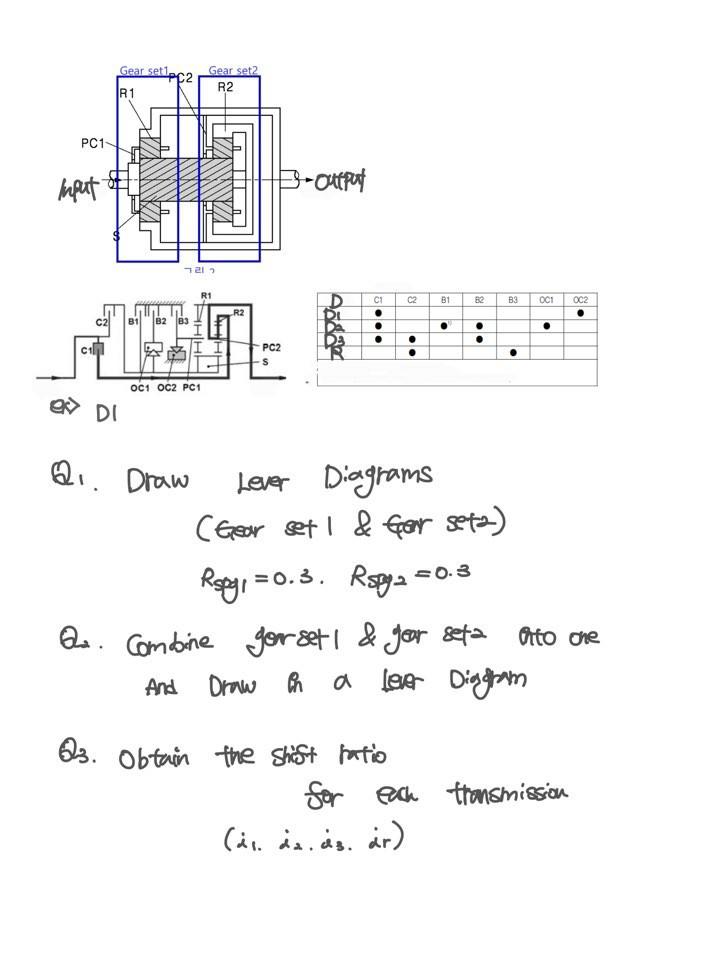 Gear set1 Gear set2
PC2
R1 R2
PC1
Input Output
S
R1
R2
C2 B1 B2 B3
C1
PC2
S
OC1 OC2 PC1
D C1 C2 B1 B2 B3 OC1 OC2
D1 ● ●
D2 ● ●¹⁾ ● ●
D3 ● ● ●
R ● ●
ex> D1
Q1. Draw Lever Diagrams
(Gear set 1 & Gear set2)
Rspg1 = 0.3. Rspg2 = 0.3
Q2. Combine gear set 1 & gear set2 into one
And Draw in a Lever Diagram
Q3. Obtain the shift ratio
for each transmission
(i1. i2. i3. ir)